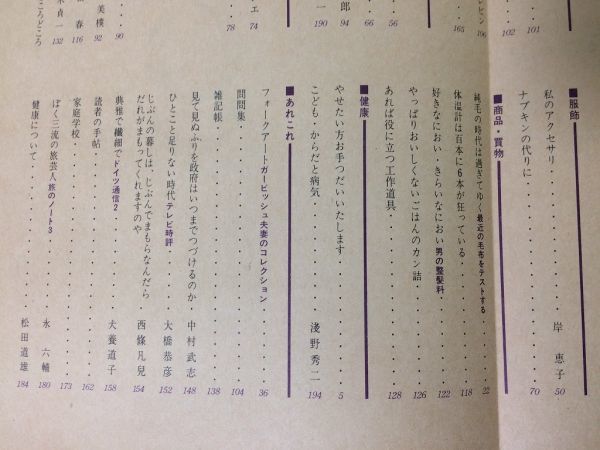 101
102
■服飾
私のアクセサリ 岸 惠子 50
ナプキンの代りに 70
■商品・買物
純毛の時代は過ぎてゆく 最近の毛布をテストする 22
体温計は百本に6本が狂っている 118
好きなにおい・きらいなにおい 男の整髪料 122
やっぱりおいしくないごはんのカン詰 126
あれば役に立つ工作道具 128
■健康
やせたい方お手つだいいたします 5
こども・からだと病気 淺野秀二 194
■あれこれ
フォークアート ガービッシュ夫妻のコレクション 36
問問集 104
雑記帳 138
見て見ぬふりを政府はいつまでつづけるのか 中村武志 148
ひとこと足りない時代 テレビ時評 大橋恭彦 152
じぶんの暮しは、じぶんでまもらなんだら
だれがまもってくれますのや 西條凡兒 154
典雅で繊細で ドイツ通信2 犬養道子 158
読者の手帖 162
家庭学校 173
ぼく三流の旅芸人 旅のノート3 永 六輔 180
健康について 松田道雄 184
106
165
56
66
郎 94
190
エ 74
78
90
美樸 92
春 116
貞一 132
ころどころ